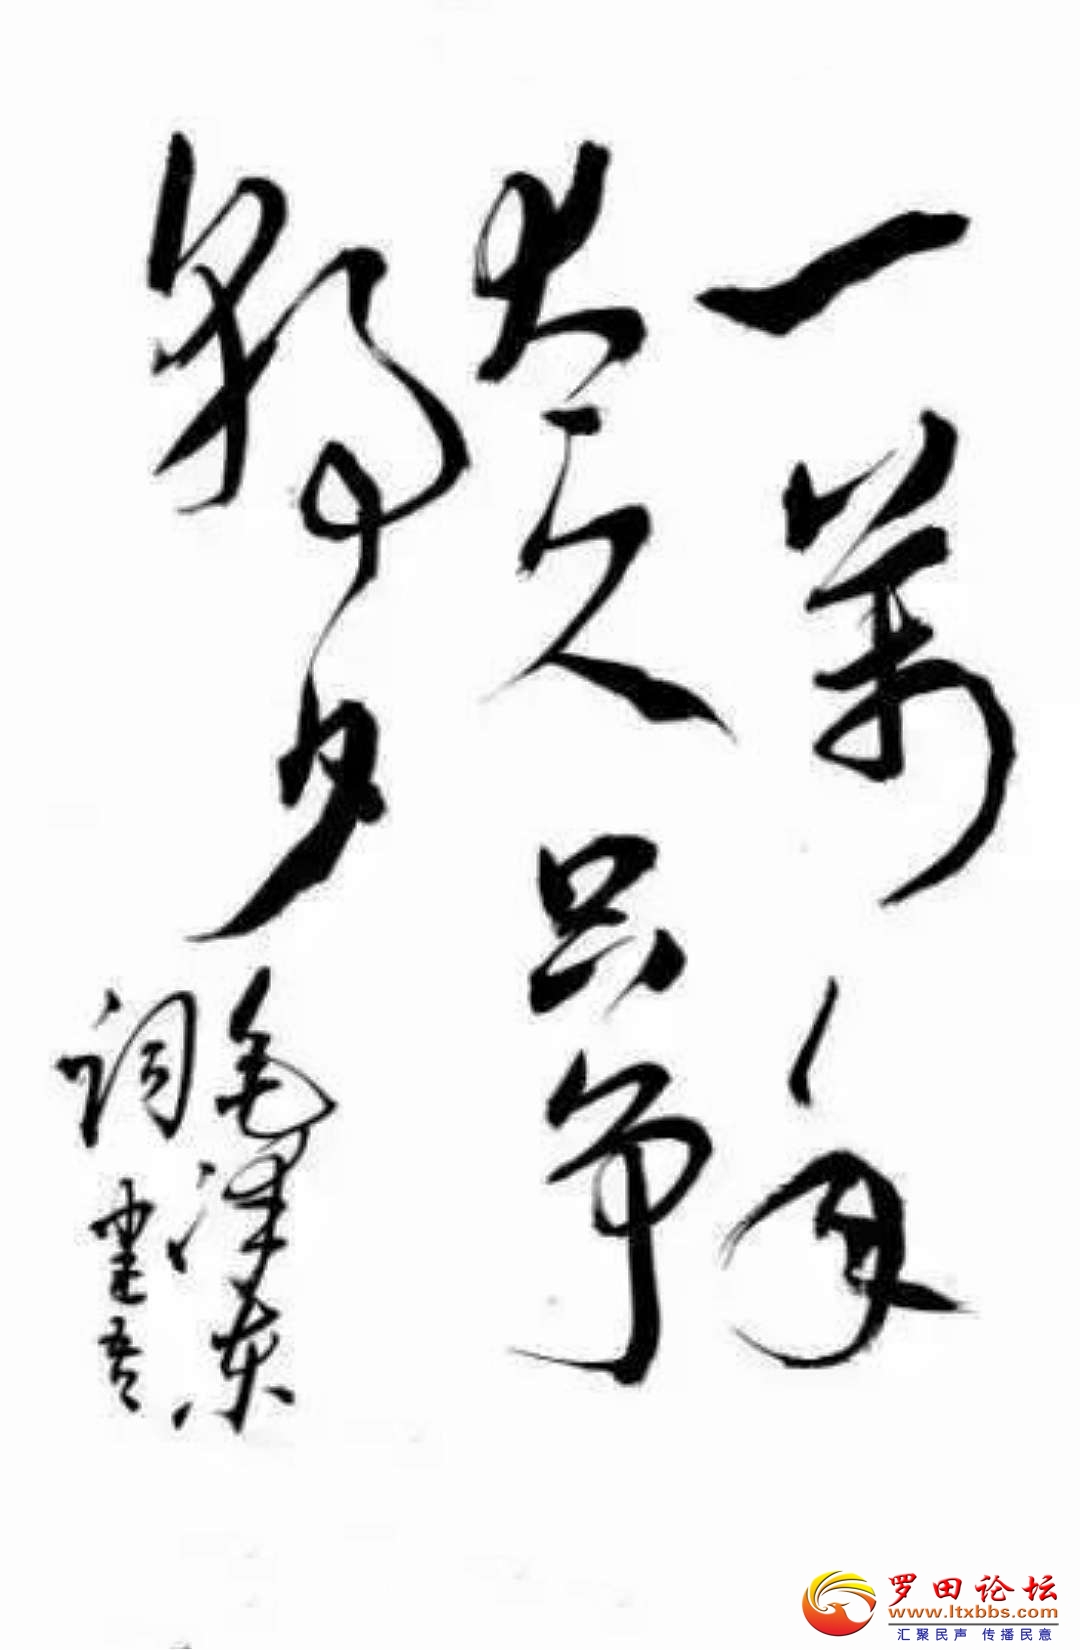 一萬年
太久只争
朝夕
毛泽东
词
罗田论坛
www.ltxbbs.com
汇聚民声 传播民意